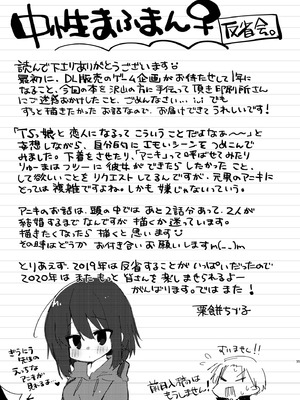 中性まふまん♀
反省会。
読んで下さりありがとうございます
最初に、DL販売のゲーム企画がお待たせして1年に
なること、今回の本を沢山の方に手伝って頂き印刷所さん
にご迷惑おかけしたこと、ごめんなさい…。でも
ずっと描きたかったお話なので、お届けできてうれしいです!
「TS娘と恋人になるってこういうことだよなぁ～～」と
妄想しながら、自分的にエモいシーンをつめこんで
みました。下着をさせたり、「アニキ」って呼ばせてみたり
りゅーまはユツーに彼女ができたらしたかったこと、
して欲しいことをリクエストしてるんですが、元男のアニキに
とっては複雑ですよね。しかも嫌じゃないっていう。
アニキのお話は、頭の中ではあと2話分あって、2人が
結婚するまでなんですが描くか迷っています。
描きたくなったら描くと思います
その時はどうかお付き合いお願いしますm(_ _)m
とりあえず、2019年は反省することがいっぱいだったので
2020年はまたもっと皆さんを楽しませられるよー
がんばります。ではまた!
栗餅ちづ子
えっちな
アニキが
見れる…
すいません!!
前日入稿は
もうしません!